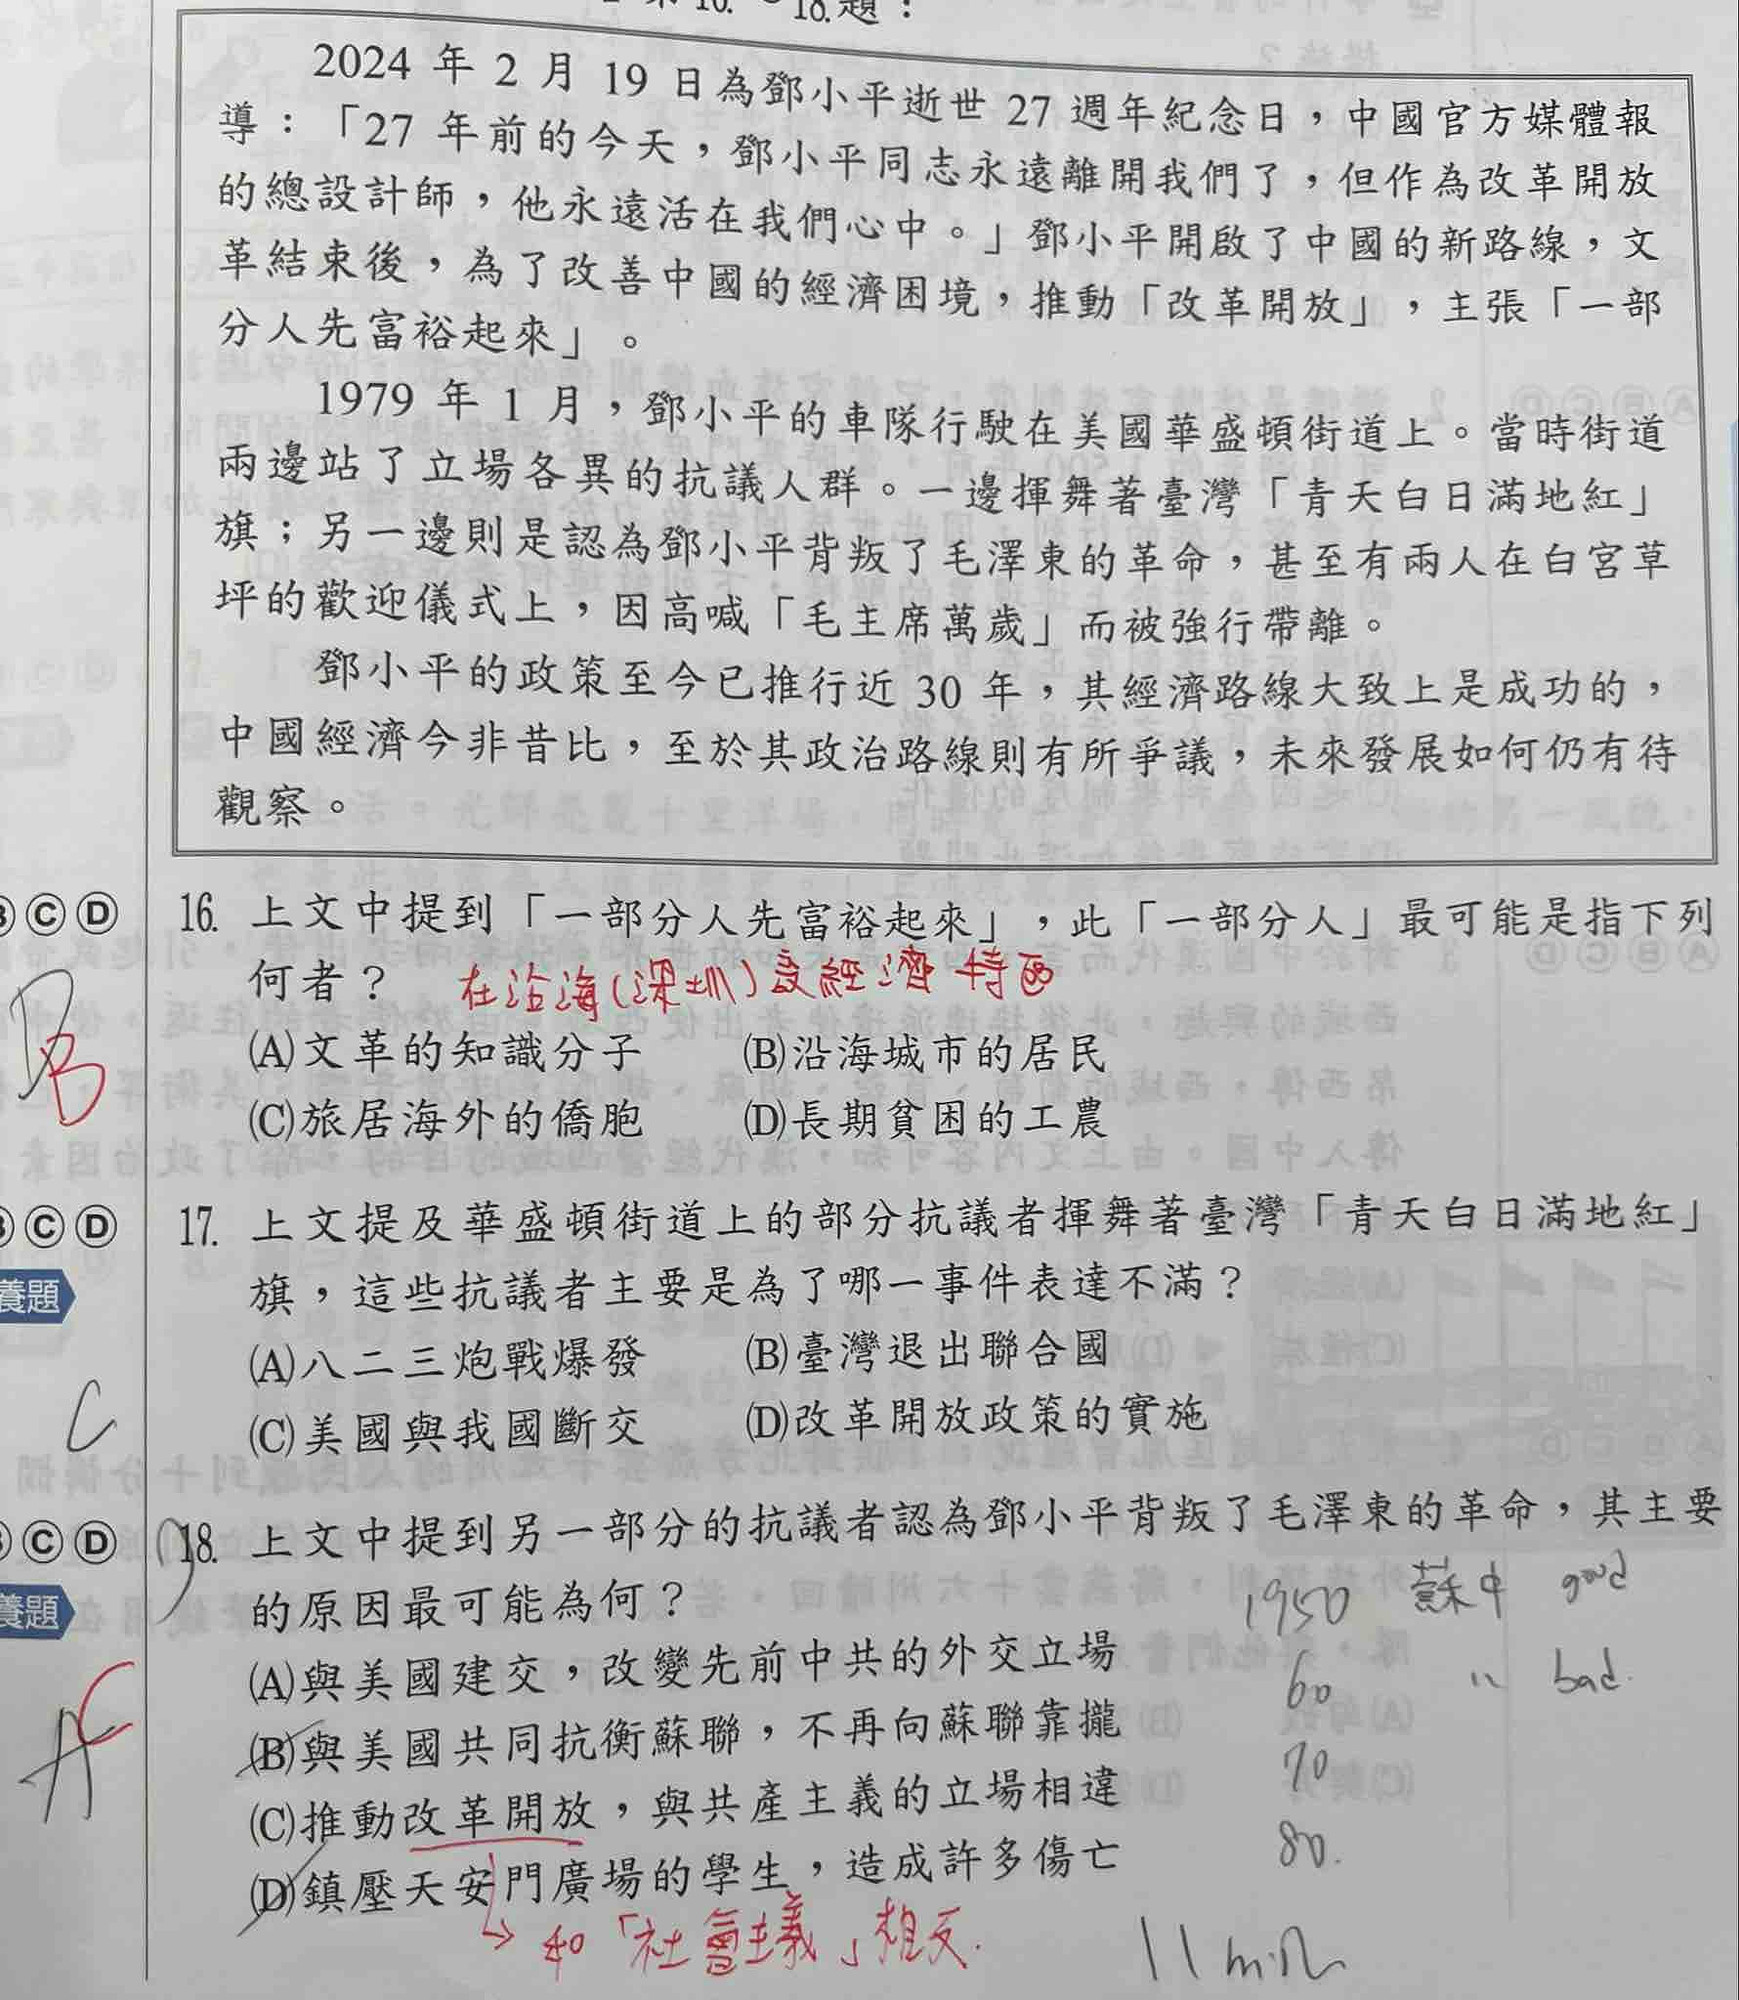 18.題：
2024 年 2 月 19 日為鄧小平逝世 27 週年紀念日，中國官方媒體報
導：「27 年前的今天，鄧小平同志永遠離開我們了，但作為改革開放
的總設計師，他永遠活在我們心中。」鄧小平開啟了中國的新路線，文
革結束後，為了改善中國的經濟困境，推動「改革開放」，主張「一部
分人先富裕起來」。
1979 年 1 月，鄧小平的車隊行駛在美國華盛頓街道上。當時街道
兩邊站了立場各異的抗議人群。一邊揮舞著臺灣「青天白日滿地紅」
旗；另一邊則是認為鄧小平背叛了毛澤東的革命，甚至有兩人在白宮草
坪的歡迎儀式上，因高喊「毛主席萬歲」而被強行帶離。
鄧小平的政策至今已推行近 30 年，其經濟路線大致上是成功的，
中國經濟今非昔比，至於其政治路線則有所爭議，未來發展如何仍有待
觀察。
Ⓒ Ⓓ 16. 上文中提到「一部分人先富裕起來」，此「一部分人」最可能是指下列
何者？ 在沿海(深圳)設經濟特區
B
(A)文革的知識分子 (B)沿海城市的居民
(C)旅居海外的僑胞 (D)長期貧困的工農
Ⓒ Ⓓ 17. 上文提及華盛頓街道上的部分抗議者揮舞著臺灣「青天白日滿地紅」
養題 旗，這些抗議者主要是為了哪一事件表達不滿？
(A)八二三炮戰爆發 (B)臺灣退出聯合國
C (C)美國與我國斷交 (D)改革開放政策的實施
Ⓒ Ⓓ 18. 上文中提到另一部分的抗議者認為鄧小平背叛了毛澤東的革命，其主要
養題 的原因最可能為何？ 1950 蘇中 good
(A)與美國建交，改變先前中共的外交立場 60 〃 bad.
A C (B)與美國共同抗衡蘇聯，不再向蘇聯靠攏 70
(C)推動改革開放，與共產主義的立場相違 80.
(D)鎮壓天安門廣場的學生，造成許多傷亡
→ 和「社會主義」相反. 11 min